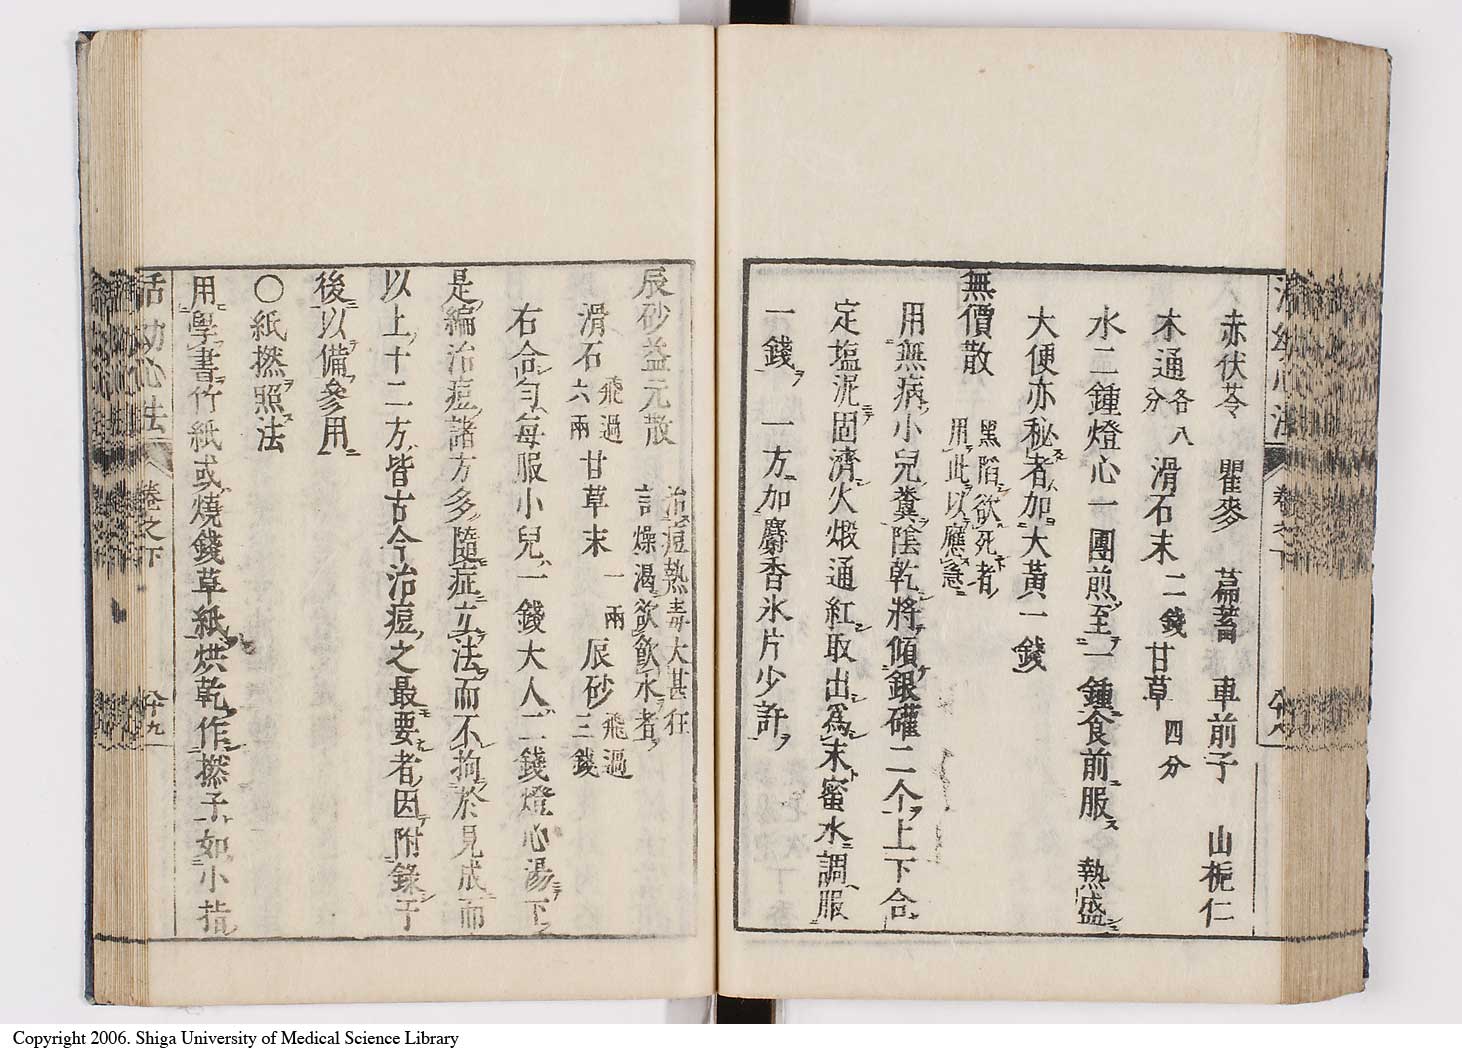 活幼心法 卷之下 八十八
赤伏苓 瞿麥 萹蓄 車前子 山梔仁
木通各八分 滑石末二錢 甘草四分
水二鍾燈心一團煎至一鍾食前服 熱盛
大便亦秘者加大黃一錢
無價散 黑陷欲死者用此以應急
用無病小兒糞陰乾將傾銀礶二个上下合
定塩泥固濟火煅通紅取出爲末蜜水調服
一錢 一方加麝香氷片少許
辰砂益元散 治痘熱毒大甚狂言燥渴欲飮水者
滑石飛過六兩 甘草末一兩 辰砂飛過三錢
右合勻每服小兒一錢大人二錢燈心湯下
是編治痘諸方多隨症立法而不拘於見成而
以上十二方皆古今治痘之最要者因附錄于
後以備參用
〇紙撚照法
用學書竹紙或燒錢草紙烘乾作撚子如小指
活幼心法 卷之下 八十九
Copyright 2006. Shiga University of Medical Science Library